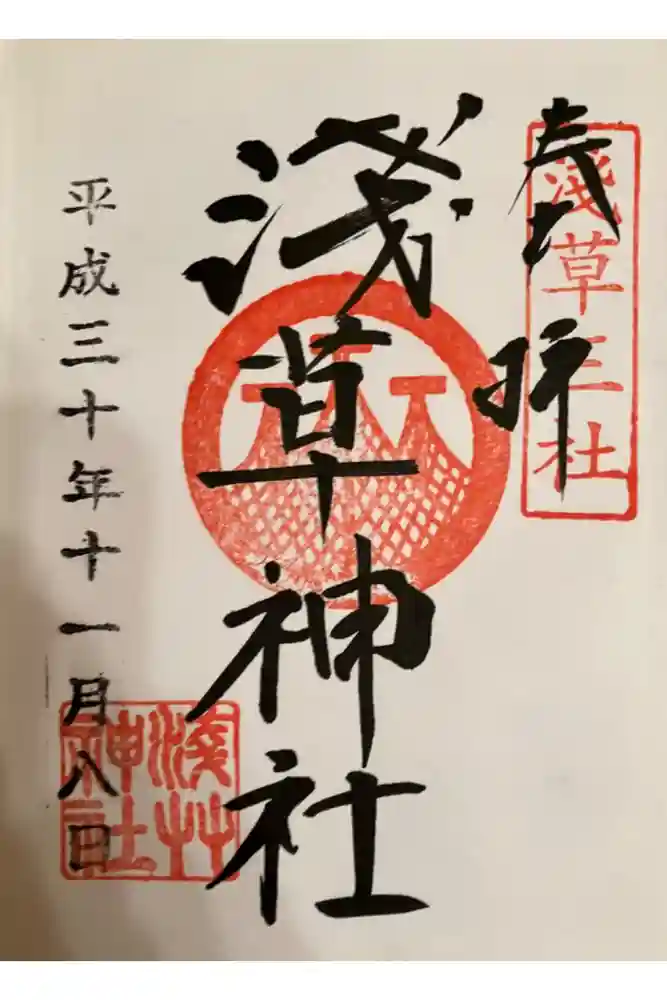 奉拝
淺草三社
淺草神社
平成三十年十一月八日
淺草
神社